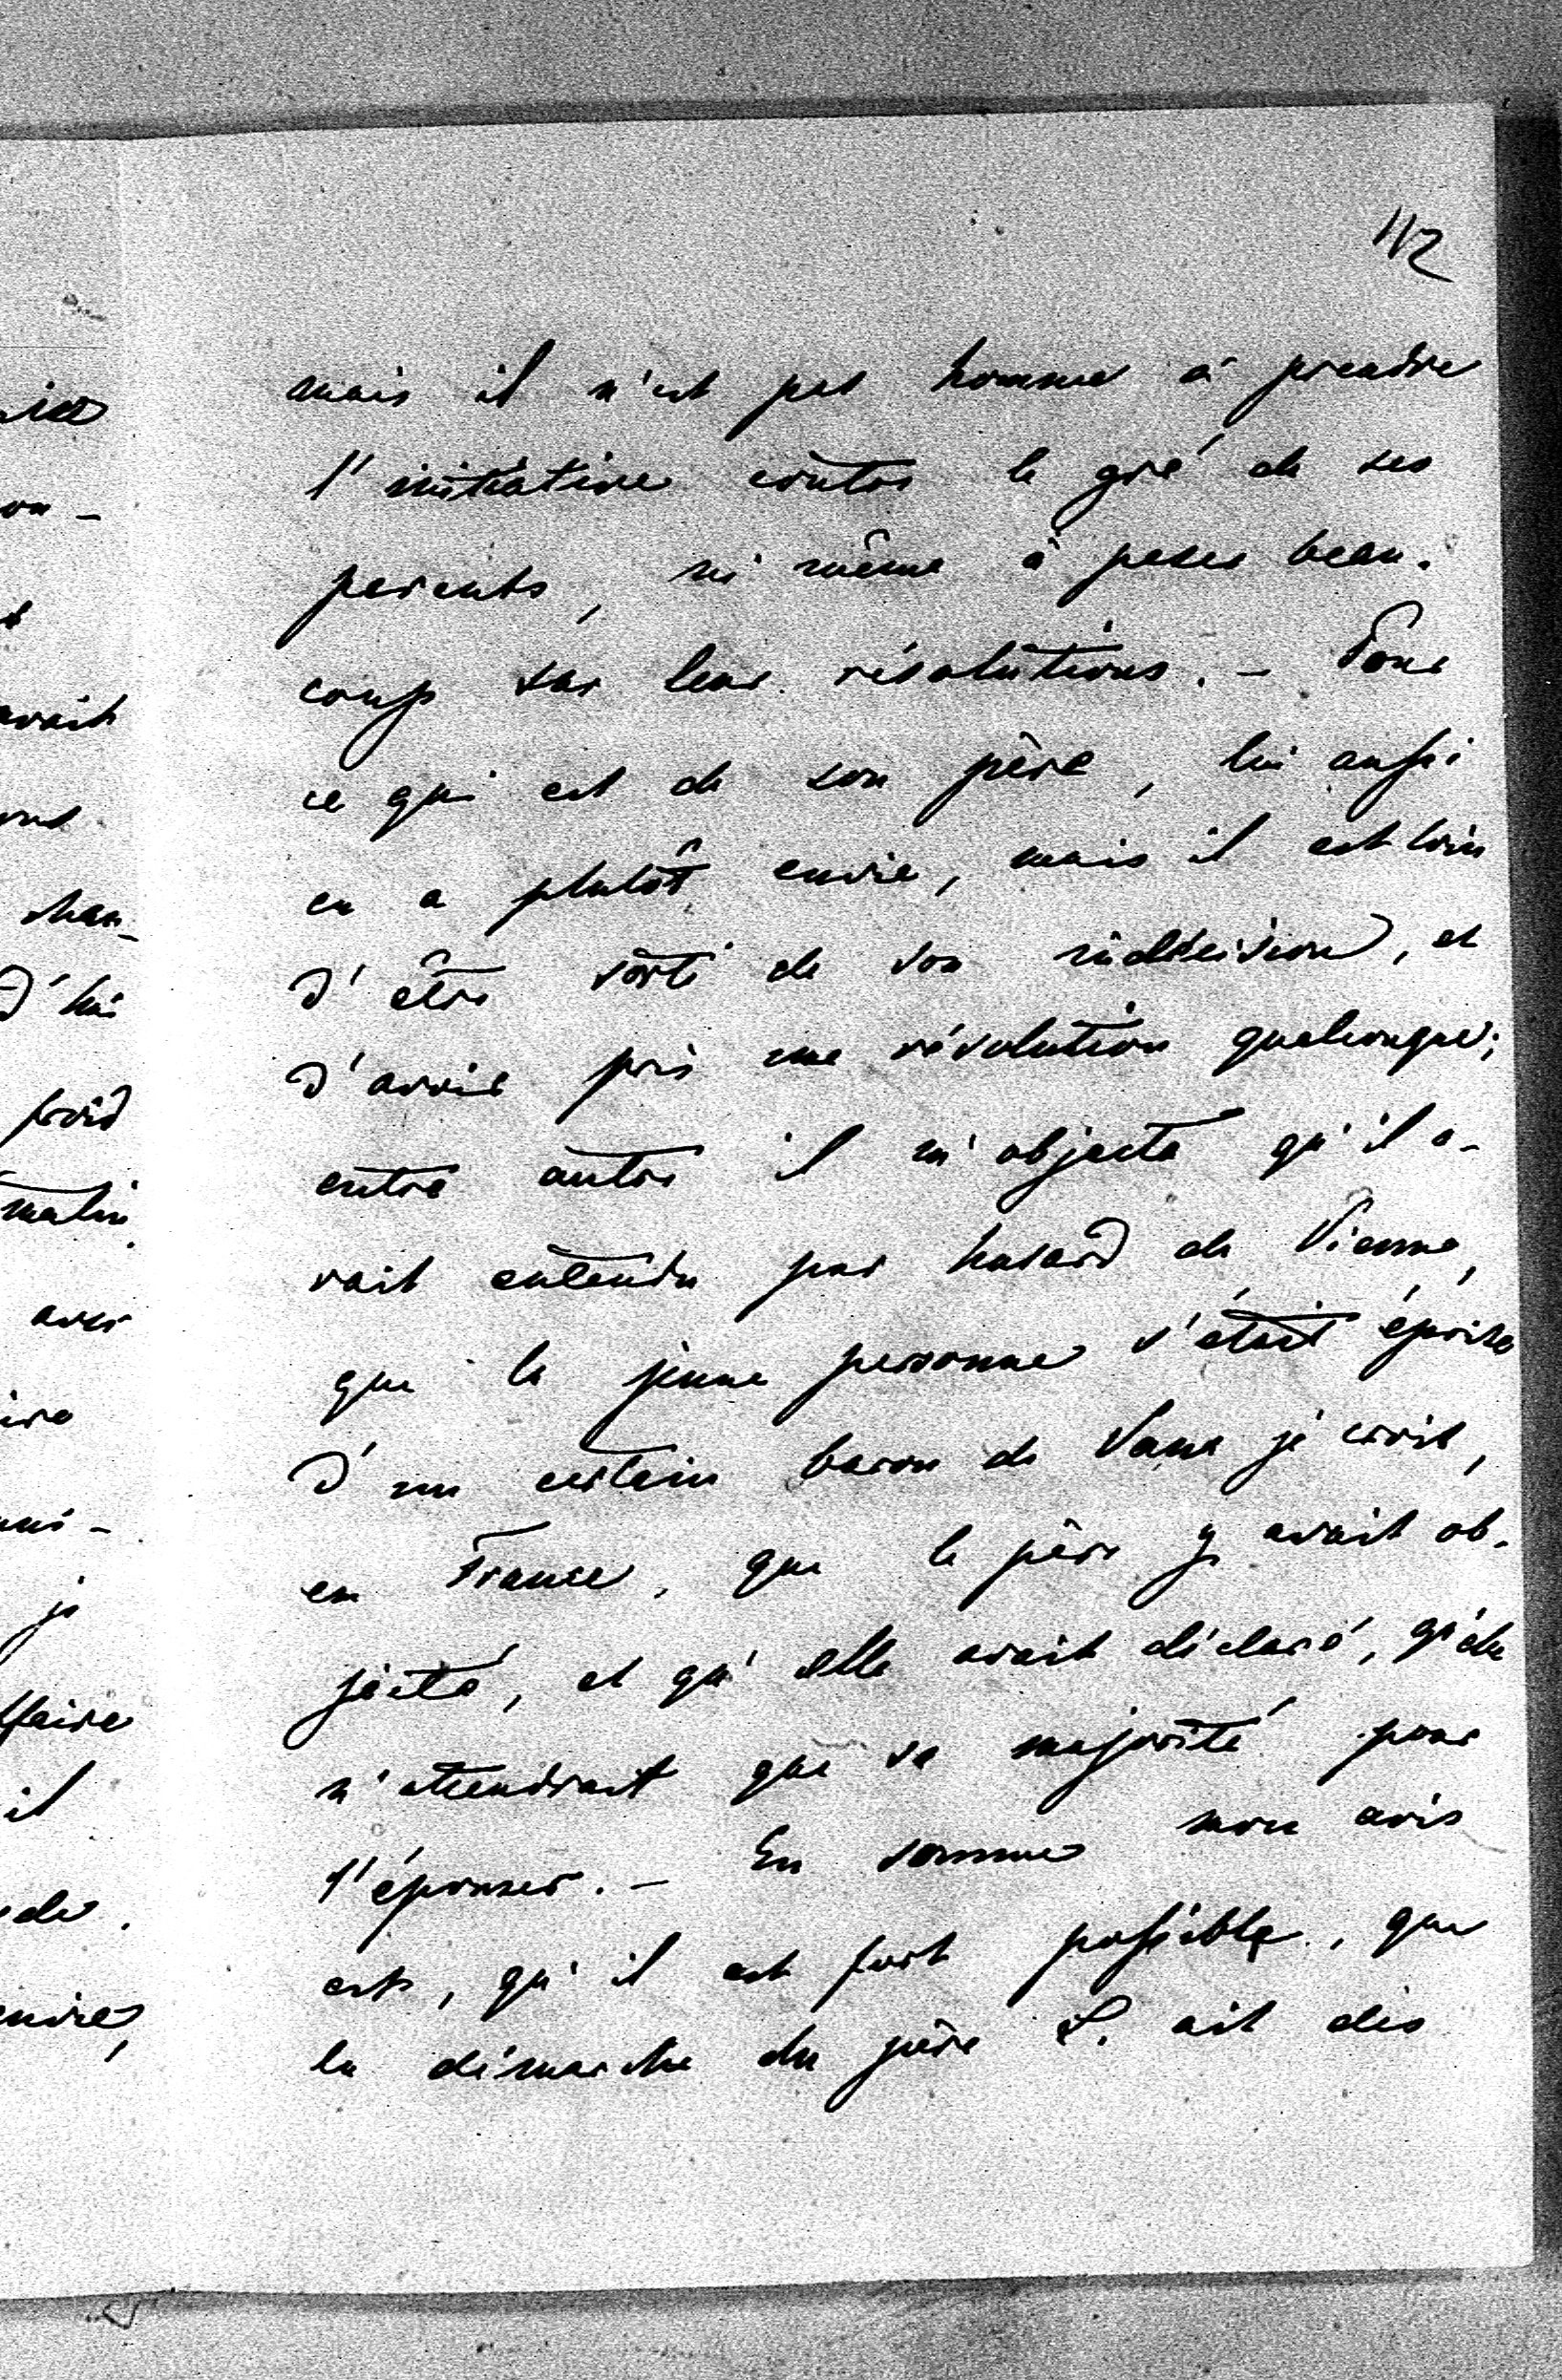 112
mais il n'est pas homme à prendre
l'initiative contre le gré de ses
parents, ni même à peser beau-
coup sur leurs résolutions. — Pour
ce qui est de son père, lui aussi
en a plutôt envie, mais il est loin
d'être sorti de son indécision, et
d'avoir pris une résolution quelconque;
entre autre il m'objecta qu'il a-
vait entendu par hasard de Vienne,
que la jeune personne s'était éprise
d'un certain baron de je crois,
en France, que le père y avait ob-
jecté, et qu'elle avait déclaré, qu'elle
n'attendrait que sa majorité pour
l'épouser. — En somme mon avis
est, qu'il est fort possible, que
la démarche du père S. ait dès
avait
d'hui
froid
matin
avec
je
il